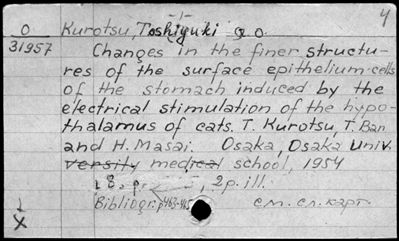 -1-
4
O Kurotsu, Toshiyuki a. o.
31957 Changes in the finer structu-
res of the surface epithelium cells
of the stomach induced by the
electrical stimulation of the hypo-
thalamus of cats. T. Kurotsu, T. Ban
and H. Masai. Osaka, Osaka Univ.
versity medical school, 1954
2 p. ill.
Bibliogr: p463-465
см. сл. карт.
X